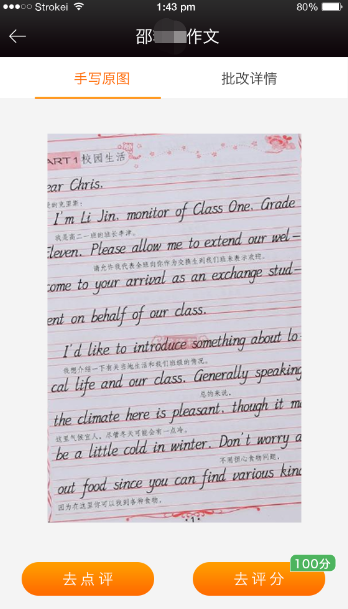 Strokei 1:43 pm 80%
邵 作文
手写原图 批改详情
ART 1 校园生活
ear Chris.
I'm Li Jin. monitor of Class One. Grade
我是高二一班的班长李津。
Eleven. Please allow me to extend our wel-
请允许我代表全班向你作为交换生到我们班来表示欢迎。
come to your arrival as an exchange stud-
ent on behalf of our class.
I'd like to introduce something about lo
我想介绍一下有关当地生活和我们班级的情况。
cal life and our class. Generally speaking
总的来说，
the climate here is pleasant. though it ma
这里气候宜人，尽管冬天可能会有一点冷。
be a little cold in winter. Don't worry a
不用担心食物问题，
out food since you can find various kind
因为在这里你可以找到各种食物。
1
100分
去点评 去评分